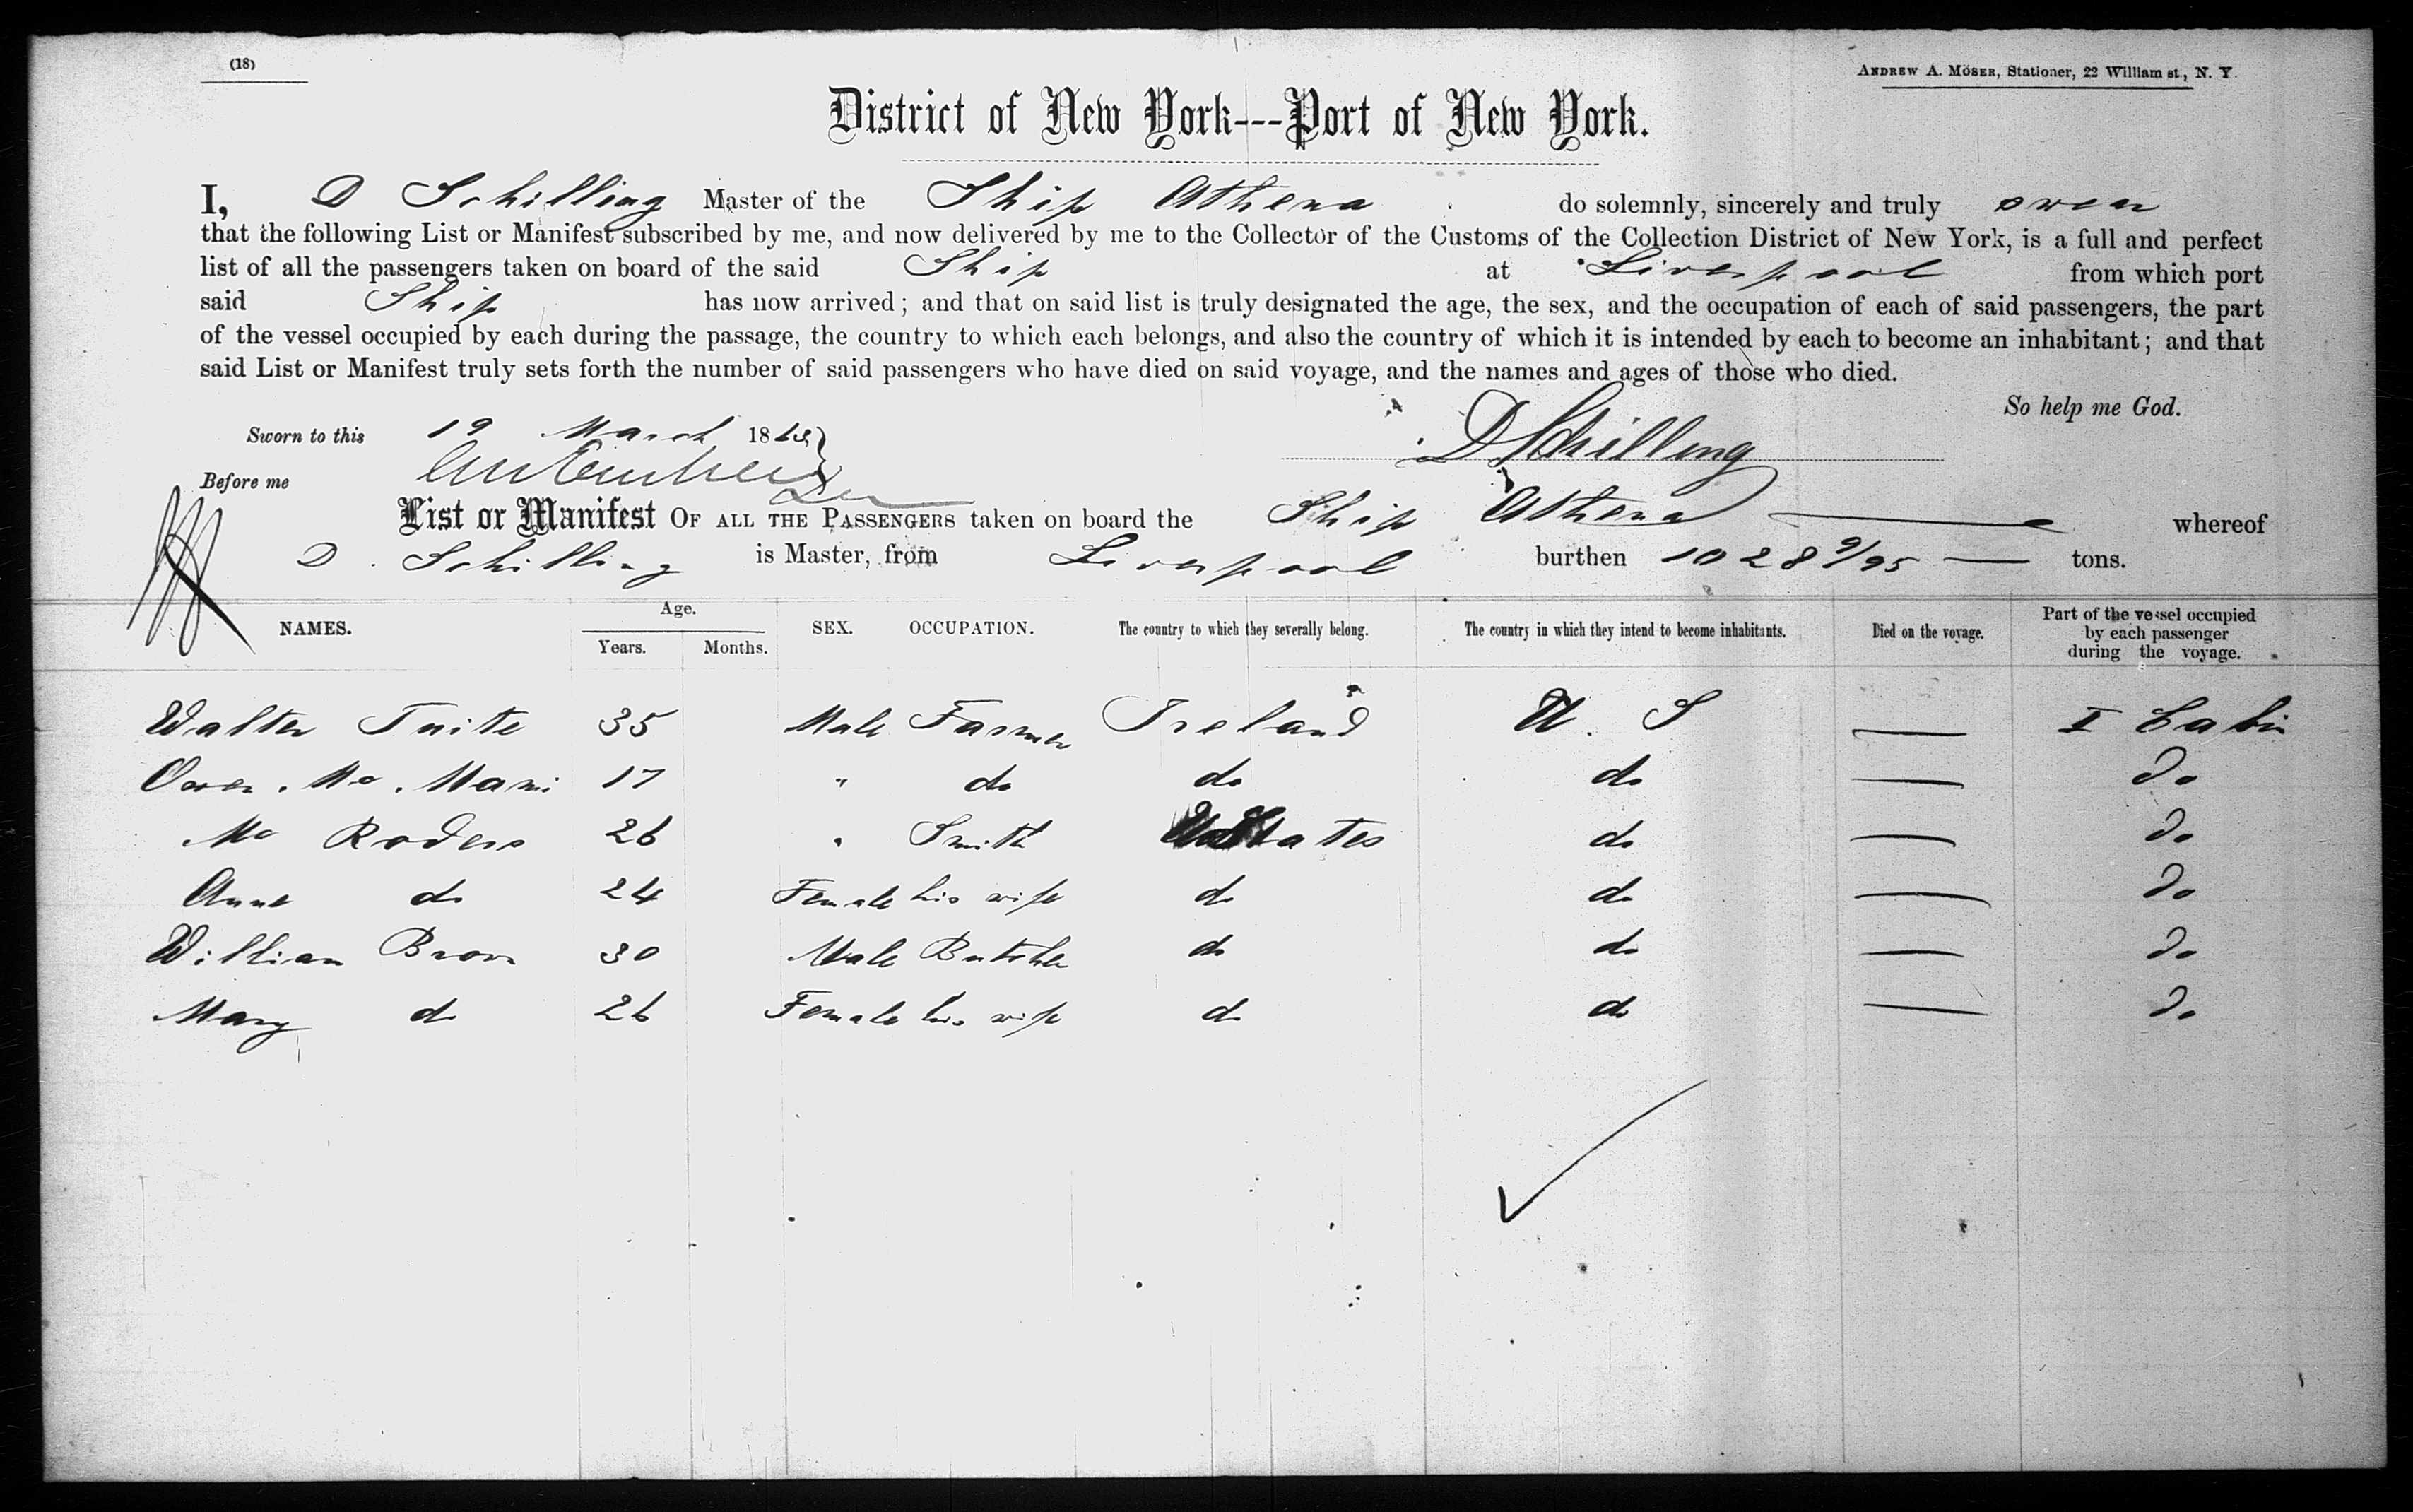 (18)
ANDREW A. MÖSER, Stationer, 22 William st., N. Y.
District of New York---Port of New York.
I, D Schilling Master of the Ship Athena do solemnly, sincerely and truly swear
that the following List or Manifest subscribed by me, and now delivered by me to the Collector of the Customs of the Collection District of New York, is a full and perfect
list of all the passengers taken on board of the said Ship at Liverpool from which port
said Ship has now arrived; and that on said list is truly designated the age, the sex, and the occupation of each of said passengers, the part
of the vessel occupied by each during the passage, the country to which each belongs, and also the country of which it is intended by each to become an inhabitant; and that
said List or Manifest truly sets forth the number of said passengers who have died on said voyage, and the names and ages of those who died.
So help me God.
Sworn to this 19 March 1863
D Schilling
Before me
List or Manifest OF ALL THE PASSENGERS taken on board the Ship Athena whereof
D. Schilling is Master, from Liverpool burthen 1028 9/95 — tons.
NAMES. Age. Years. Months. SEX. OCCUPATION. The country to which they severally belong. The country in which they intend to become inhabitants. Died on the voyage. Part of the vessel occupied by each passenger during the voyage.
Walter Tuite 35 Male Farmer Ireland U. S — I Cabin
Owen Mc Mani 17 " do do do — do
Mc Roders 26 " Smith States do — do
Anne do 24 Female his wife do do — do
William Brown 30 Male Butcher do do — do
Mary do 26 Female his wife do do — do